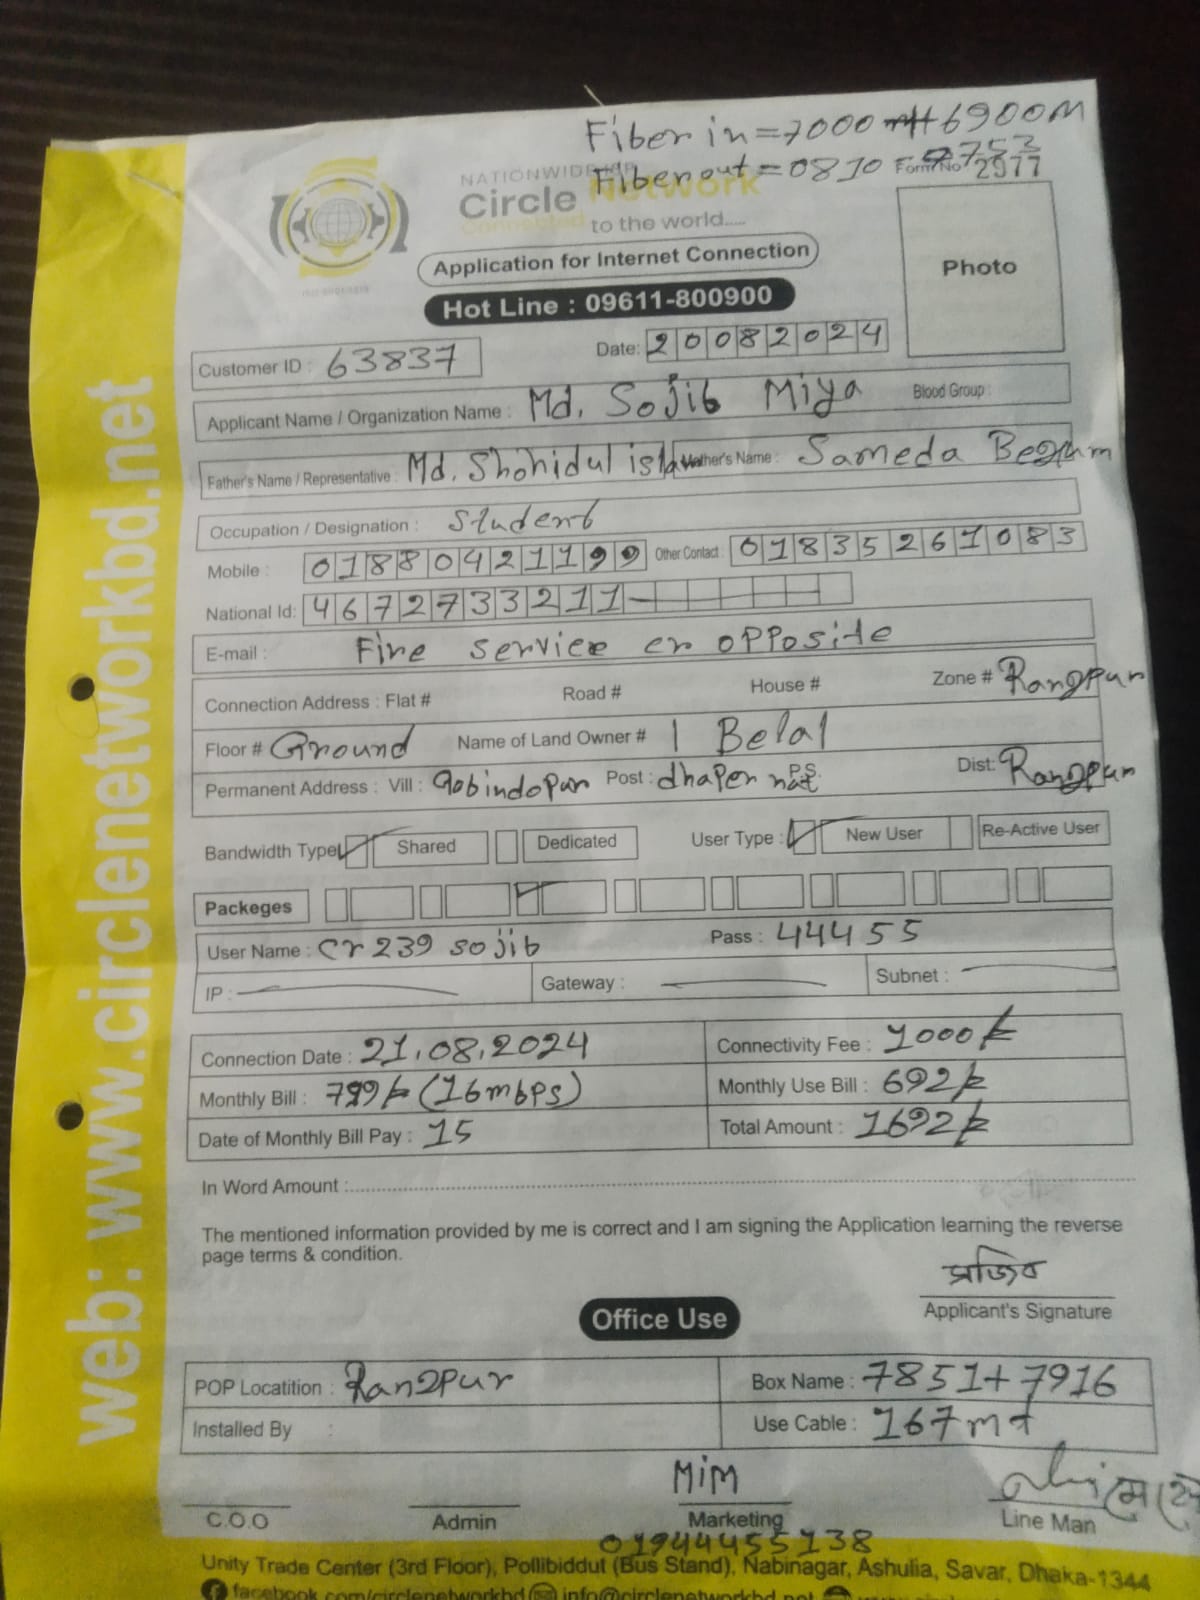 Fiber in = 7000 + 6900M
Fiber out = 0810
9753
Form No 2977
NATIONWIDE ISP
Circle Network
Connected to the world.....
Application for Internet Connection
Photo
Hot Line : 09611-800900
Customer ID : 63837 Date: 20082024
Applicant Name / Organization Name : Md. Sojib Miya Blood Group :
Father's Name / Representative : Md. Shohidul islam Mother's Name : Sameda Begum
Occupation / Designation : Student
Mobile : 01880421199 Other Contact : 01835261083
National Id: 4672733211
E-mail : Fire service er opposite
Connection Address : Flat # Road # House # Zone # Rangpur
Floor # Ground Name of Land Owner # Belal
Permanent Address : Vill : gobindopur Post : dhaper hat P.S. Dist: Rangpur
Bandwidth Type Shared Dedicated User Type : New User Re-Active User
Packeges
User Name : cr239 sojib Pass : 44455
IP : Gateway : Subnet :
Connection Date : 21.08.2024 Connectivity Fee : 1000/-
Monthly Bill : 799/- (16mbps) Monthly Use Bill : 692/-
Date of Monthly Bill Pay : 15 Total Amount : 1692/-
In Word Amount :
The mentioned information provided by me is correct and I am signing the Application learning the reverse
page terms & condition.
সজিব
Applicant's Signature
Office Use
POP Locatition : Rangpur Box Name : 7851+7916
Installed By : Use Cable : 167 mt
MiM
C.O.O Admin Marketing Line Man
01944455138
Unity Trade Center (3rd Floor), Pollibiddut (Bus Stand), Nabinagar, Ashulia, Savar, Dhaka-1344
facebook.com/circlenetworkbd info@circlenetworkbd.net
web: www.circlenetworkbd.net